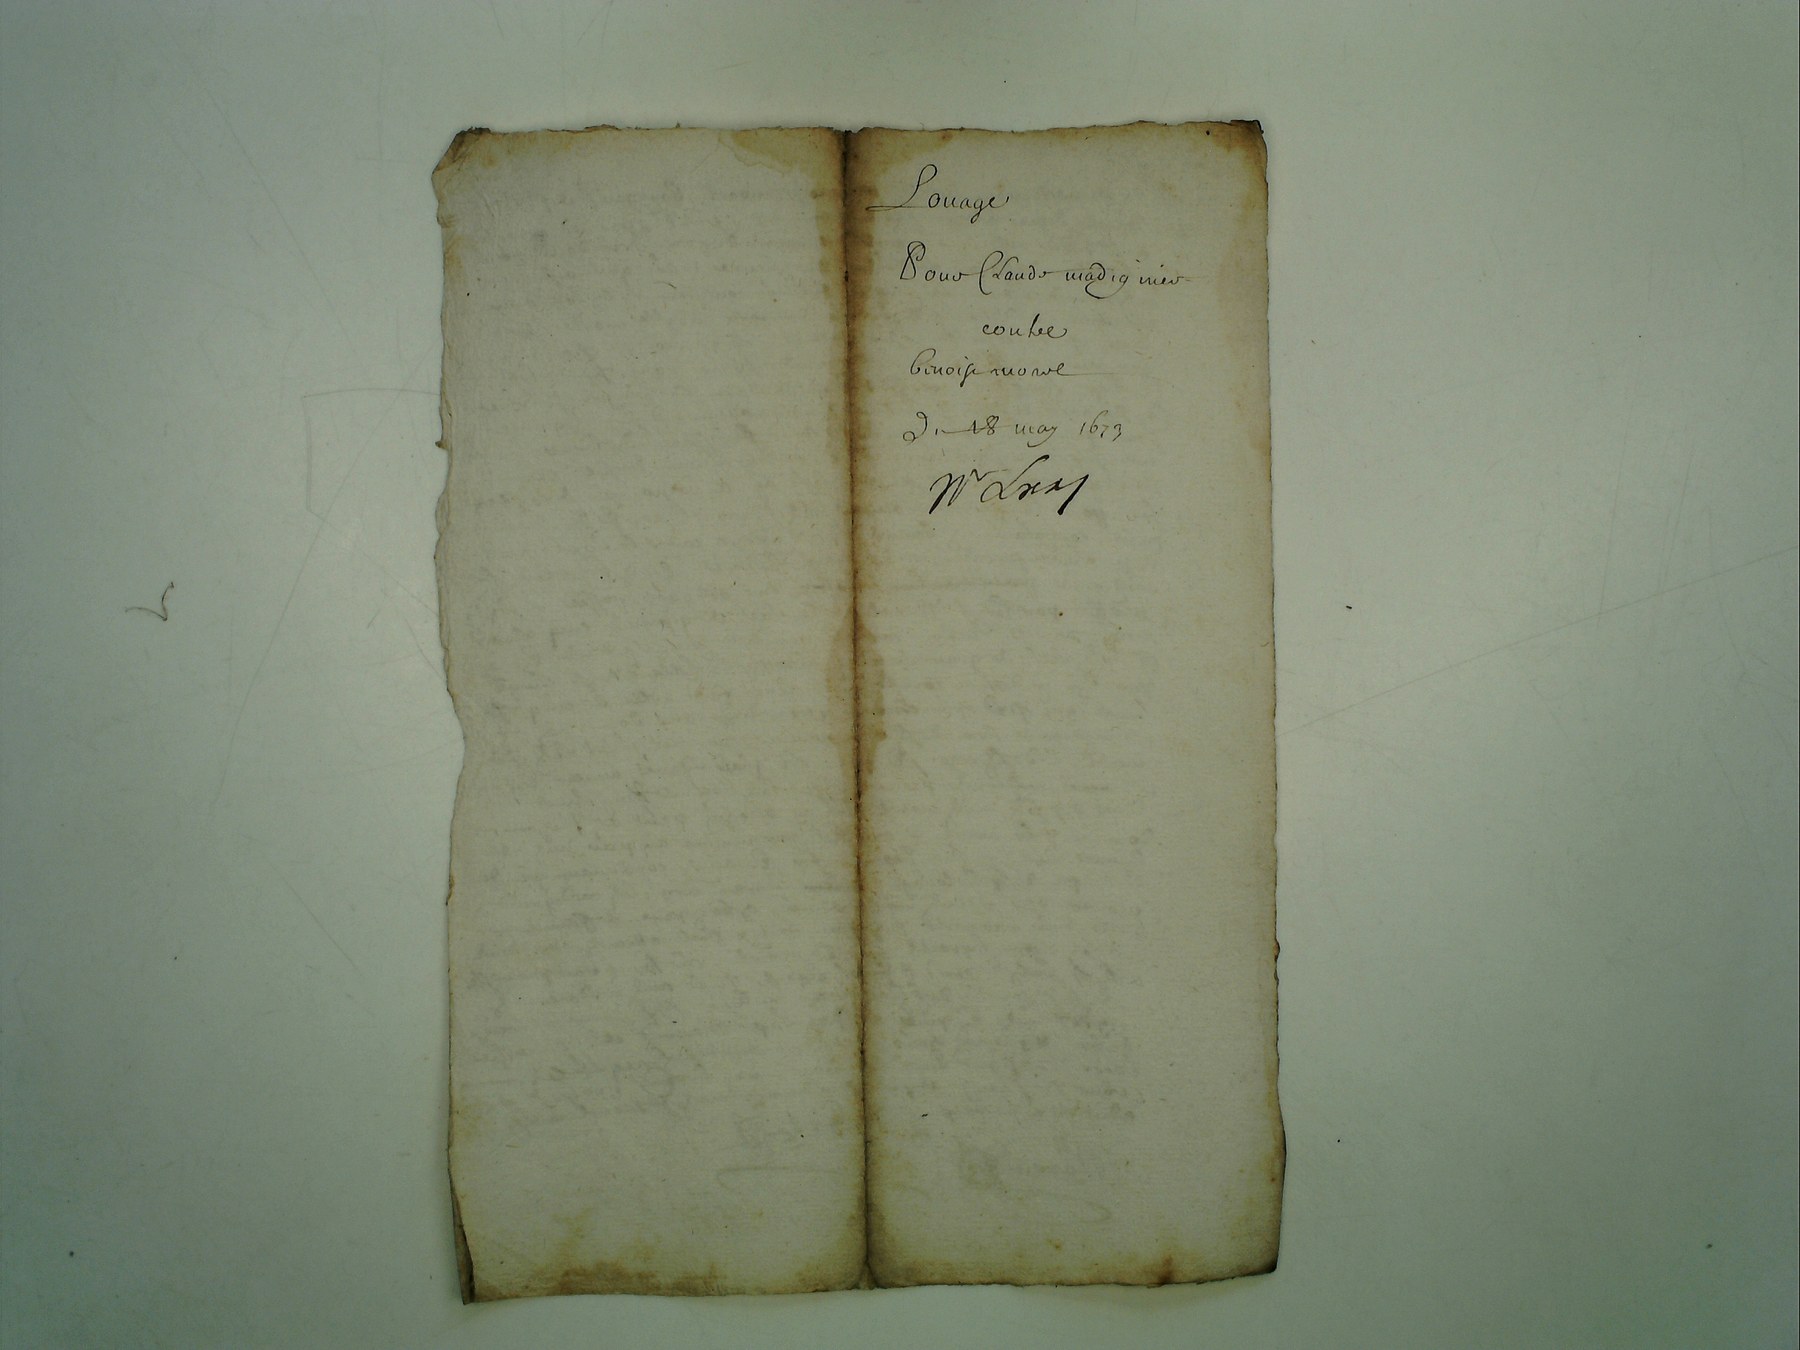 Louage
Pour Claude madignier
contre
benoist morel
Du 18 may 1673
Mr